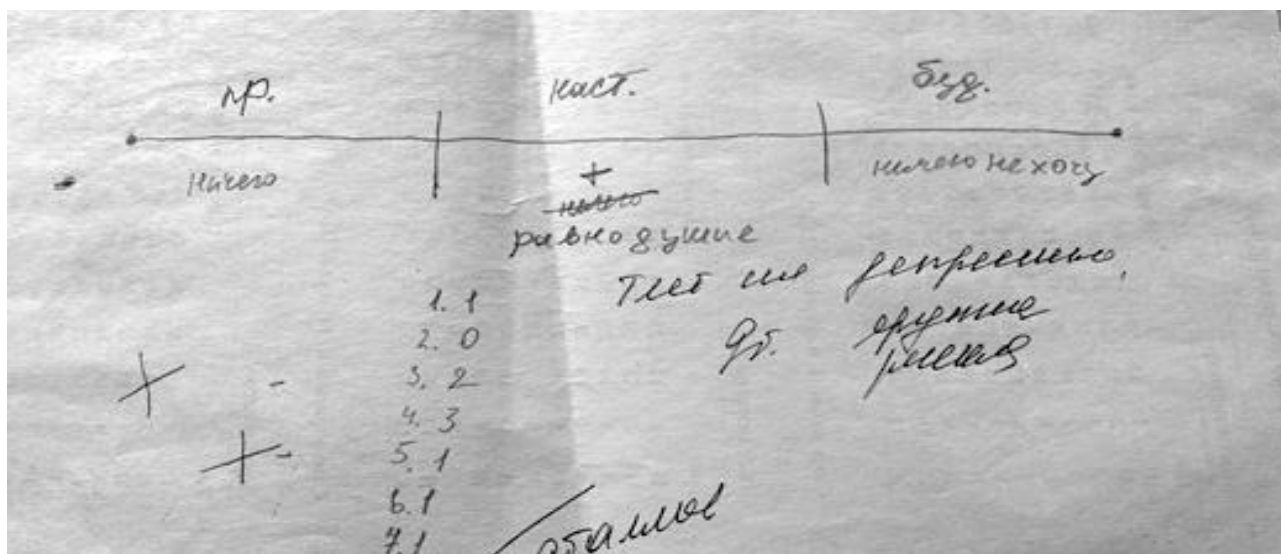 пр. наст. буд.
ничего + ничего не хочу
ничего
равнодушие
Тест на депрессию,
группа
риска
1. 1
2. 0
+ - 3. 2
4. 3
+ - 5. 1
6. 1
7. 1
баллов